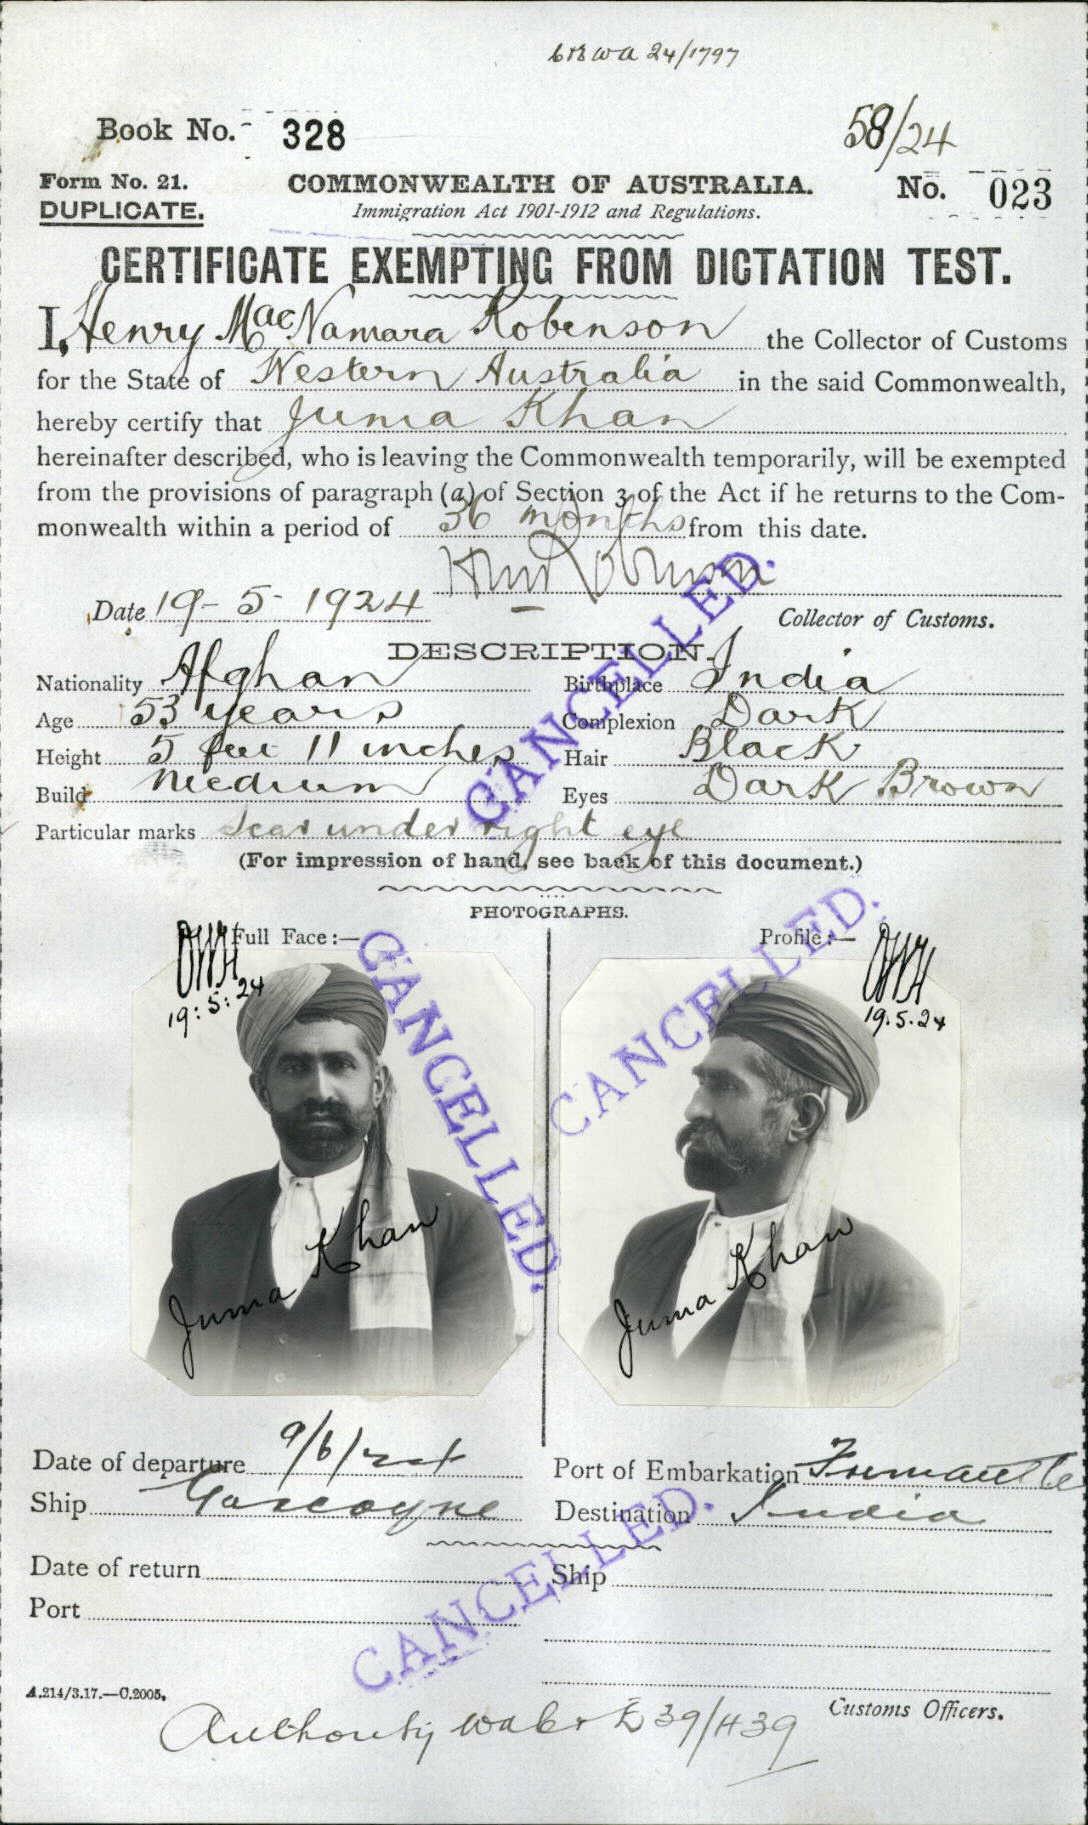 24/1797
Book No. 328
58/24
Form No. 21.
DUPLICATE.
COMMONWEALTH OF AUSTRALIA.
No. 023
Immigration Act 1901-1912 and Regulations.
CERTIFICATE EXEMPTING FROM DICTATION TEST.
I, Henry MacNamara Robinson the Collector of Customs
for the State of Western Australia in the said Commonwealth,
hereby certify that Juma Khan
hereinafter described, who is leaving the Commonwealth temporarily, will be exempted
from the provisions of paragraph (a) of Section 3 of the Act if he returns to the Com-
monwealth within a period of 36 months from this date.
Date 19-5-1924
Collector of Customs.
DESCRIPTION.
Nationality Afghan Birthplace India
Age 53 years Complexion Dark
Height 5 feet 11 inches Hair Black
Build Medium Eyes Dark Brown
Particular marks Scar under right eye
(For impression of hand, see back of this document.)
PHOTOGRAPHS.
Full Face:— Profile:—
19:5:24 19.5.24
Juma Khan Juma Khan
Date of departure 9/6/24 Port of Embarkation Fremantle
Ship Gascoyne Destination India
Date of return Ship
Port
A.214/3.17.—C.2005.
Customs Officers.
Authority 39/439
CANCELLED.
CANCELLED.
CANCELLED.
CANCELLED.